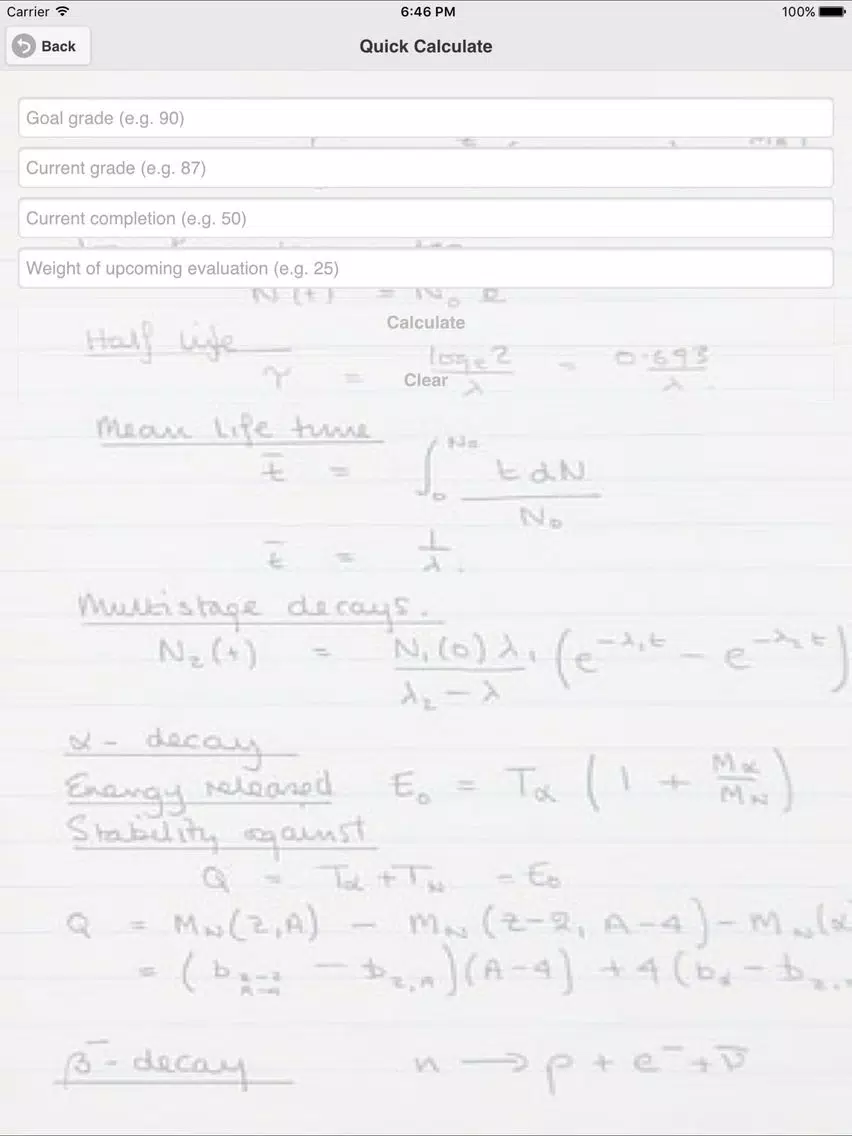 Carrier 6:46 PM 100%
Back Quick Calculate
Goal grade (e.g. 90)
Current grade (e.g. 87)
Current completion (e.g. 50)
Weight of upcoming evaluation (e.g. 25)
N(t) = N₀ e
Calculate
Half life
τ = logₑ2/λ = 0.693/λ
Clear
Mean life time
t̄ = ∫₀^N₀ t dN / N₀
t̄ = 1/λ.
Multistage decays.
N₂(t) = N₁(0) λ₁ / λ₂ - λ (e^-λ₁t - e^-λ₂t)
α - decay
Energy released E₀ = Tα (1 + Mα/MN)
Stability against
Q = Tα + TN = E₀
Q = MN(Z,A) - MN(Z-2, A-4) - MN(α
= (b Z-2 A-4 - b Z,A)(A-4) + 4(bα - b Z,
β⁻ - decay n → p + e⁻ + ν̄